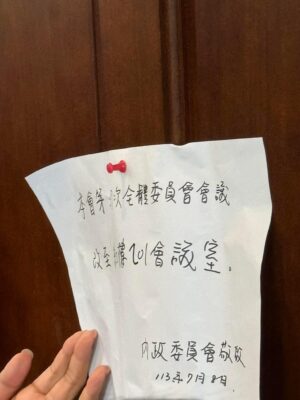 本會第次全體委員會會議
改至樓201會議室.
內政委員會敬啟
113年7月8日